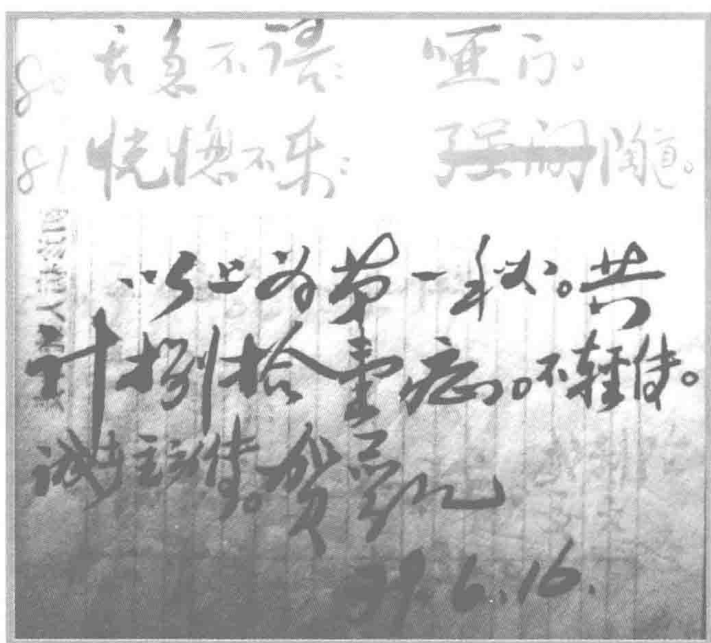 80 舌急不语: 哑门。
81 恍惚不乐: 强间 陶道。
以上为第一秘。共
计捌拾壹病。不轻传。
诚者立传。贺
79.6.16.